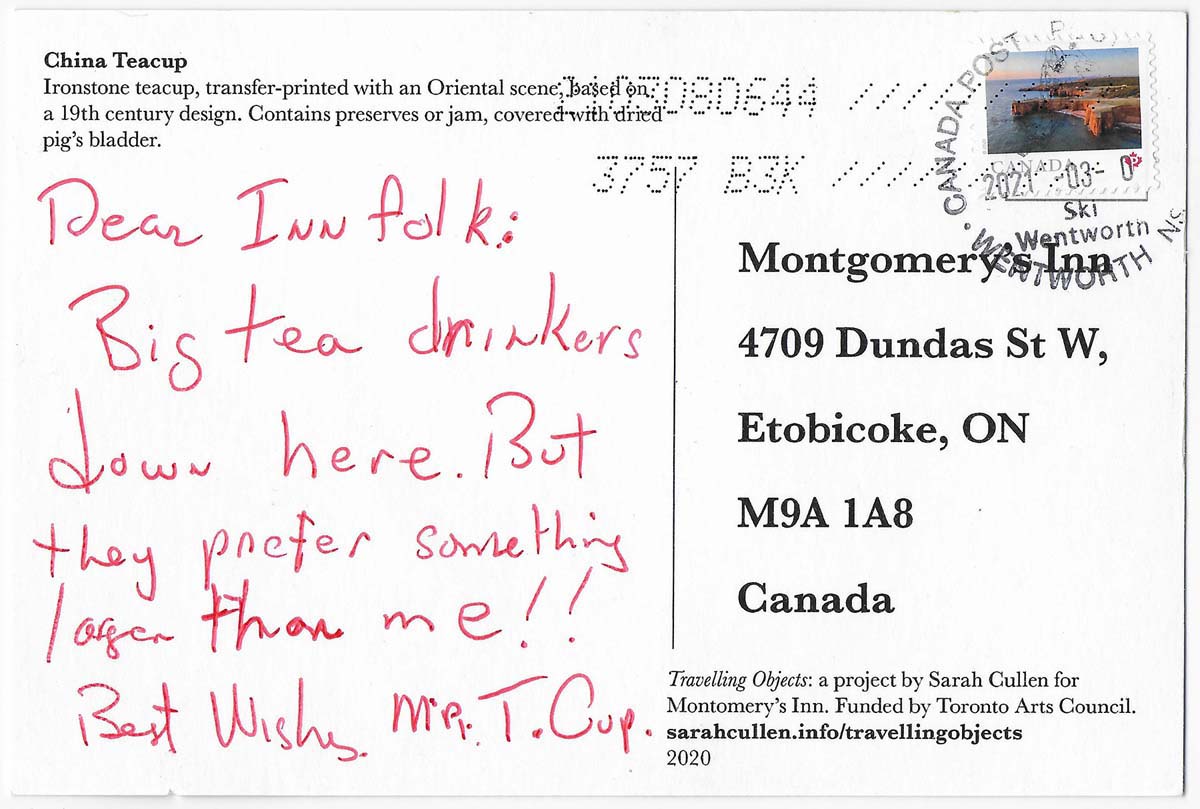 China Teacup
Ironstone teacup, transfer-printed with an Oriental scene, based on
a 19th century design. Contains preserves or jam, covered with dried
pig's bladder.
080644
3757 B3K
CANADA POST
CANADA
P
2021 -03- 0
Ski
Wentworth
WENTWORTH N.S.
Dear Inn folk:
Big tea drinkers
down here. But
they prefer something
larger than me!!
Best Wishes. Mr. T. Cup.
Montgomery's Inn
4709 Dundas St W,
Etobicoke, ON
M9A 1A8
Canada
Travelling Objects: a project by Sarah Cullen for
Montomery's Inn. Funded by Toronto Arts Council.
sarahcullen.info/travellingobjects
2020